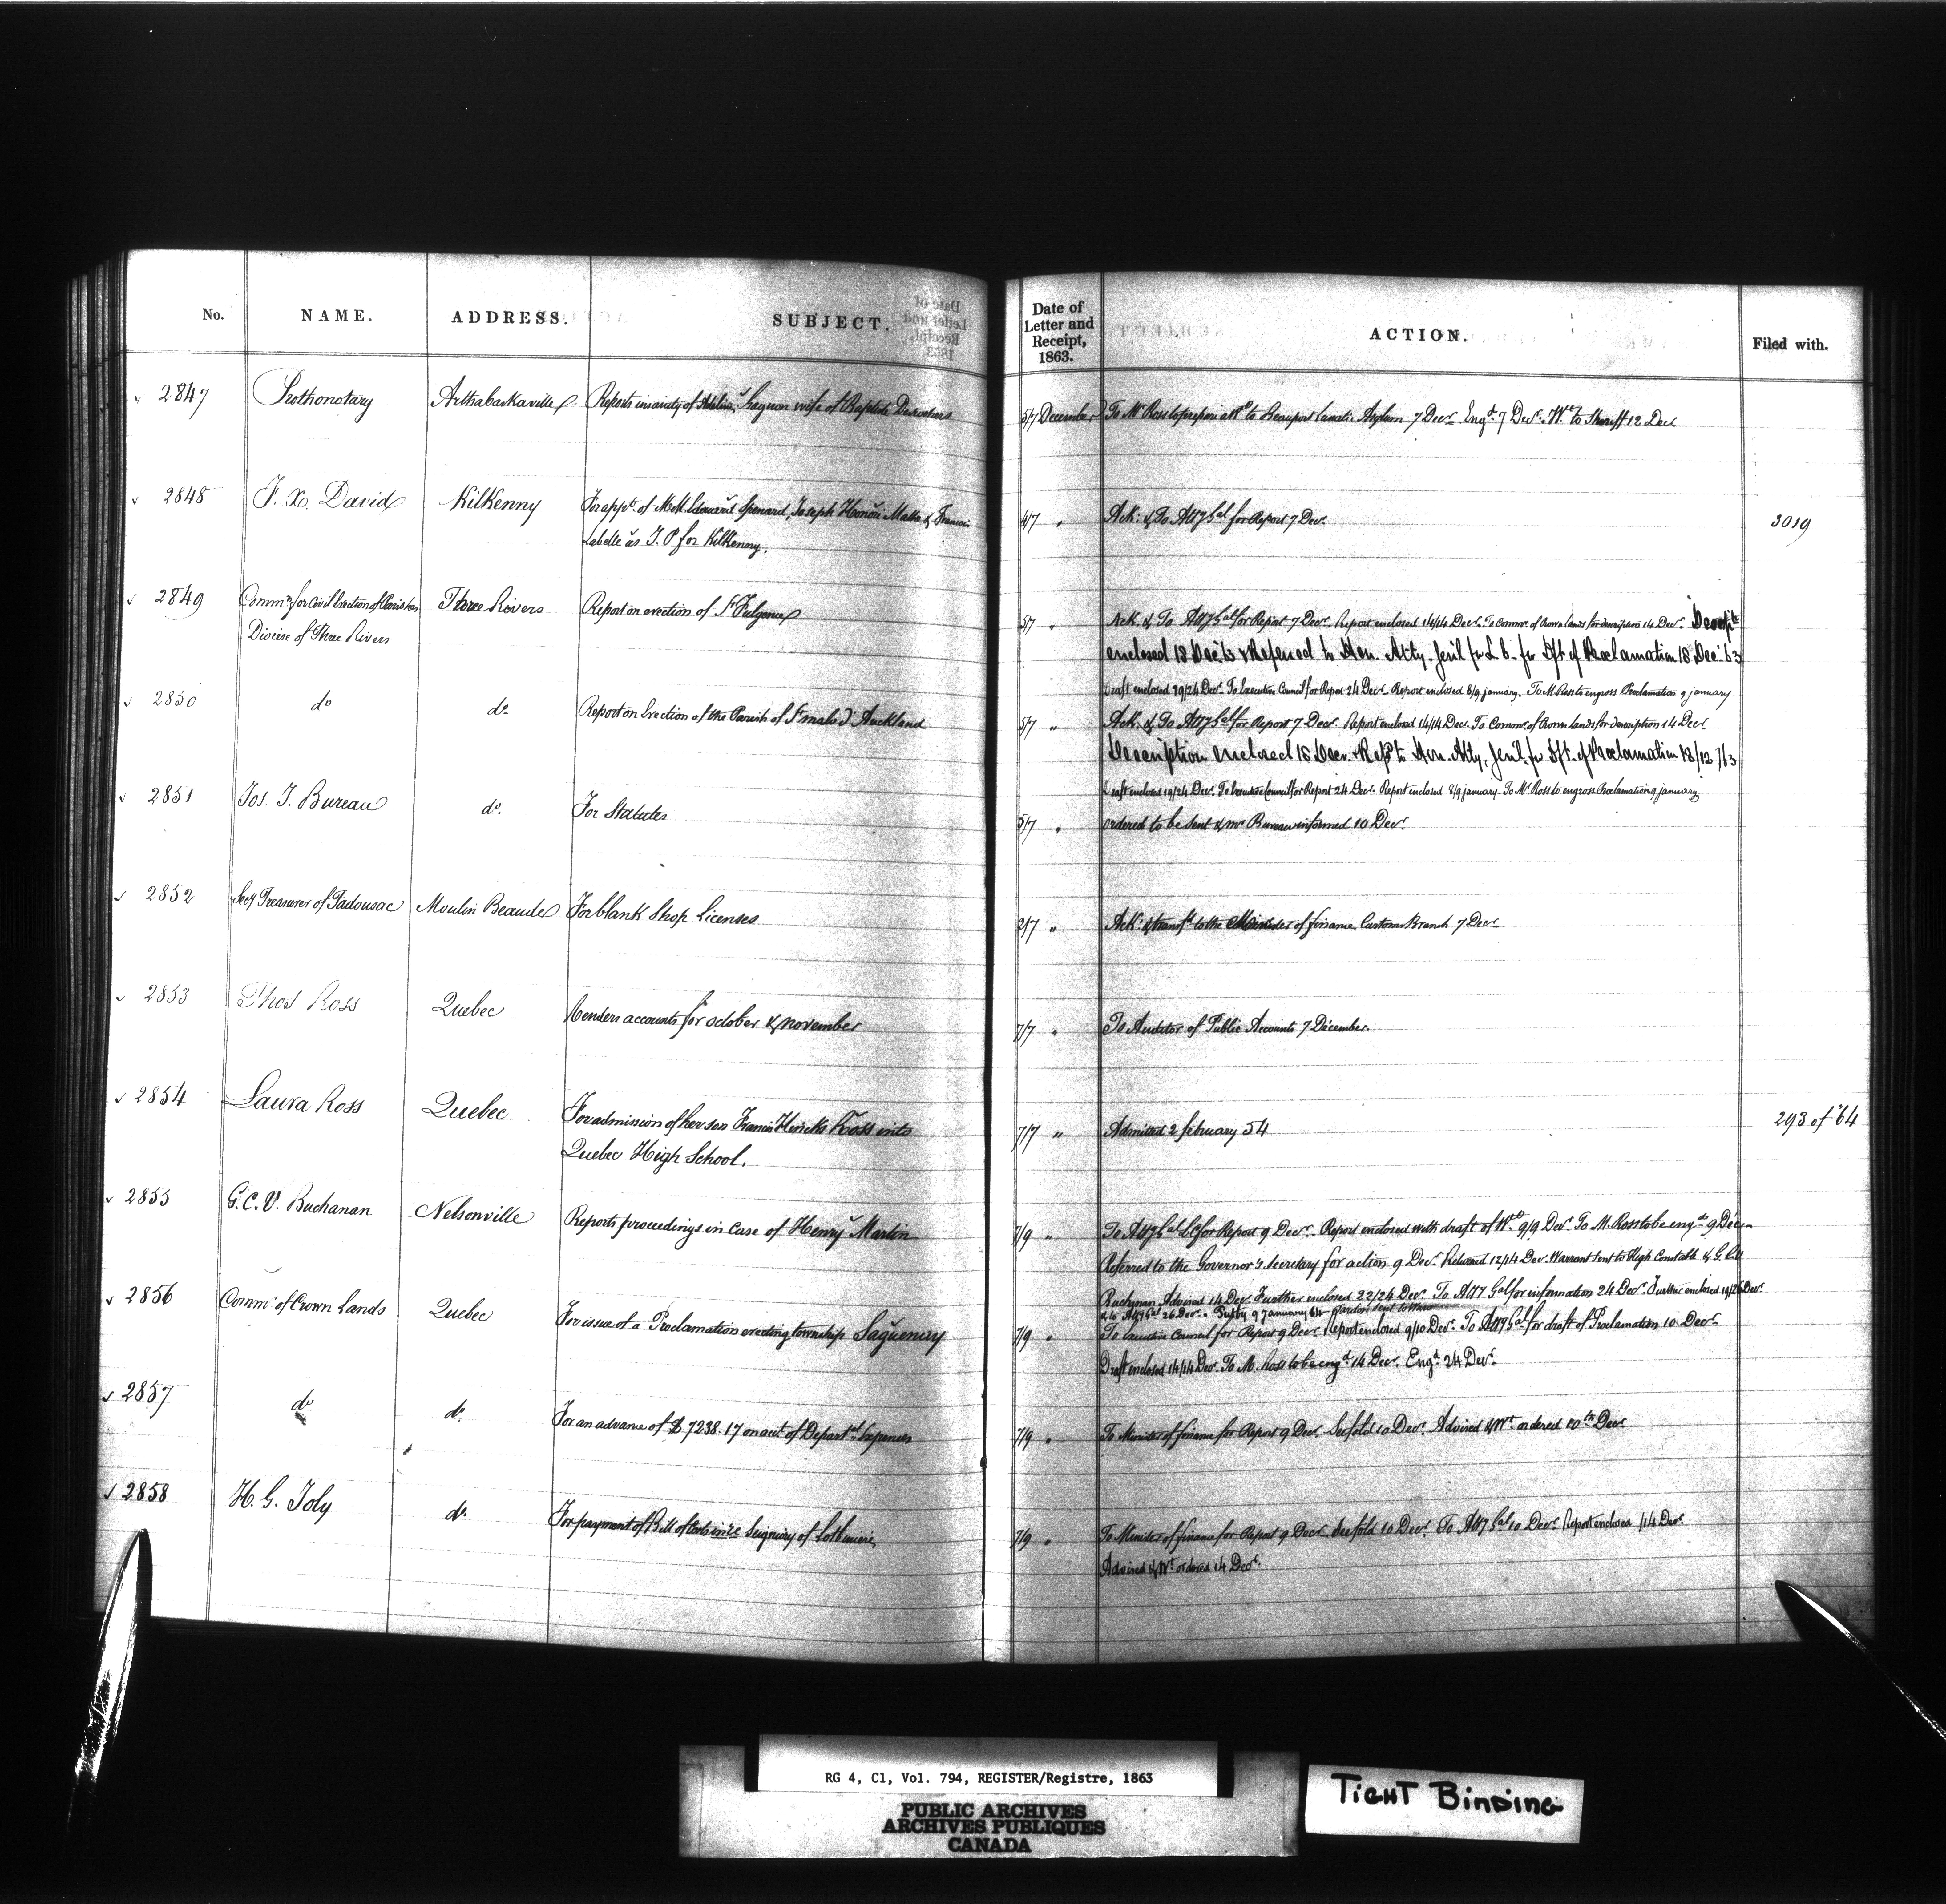 No. NAME. ADDRESS. SUBJECT. Date of Letter and Receipt, 1863. ACTION. Filed with.
2847 Prothonotary Arthabaskaville Reports insanity of Gagnon wife of Baptiste Desrochers 5/7 December To Mr Ross to prepare a Wt to Beauport Lunatic Asylum 7 Decr Engd 7 Decr Wt to Sheriff 12 Dec
2848 F. X. David Kilkenny For appt. of MM Edouard Spenard, Joseph Honoré Malla & Francois 4/7 " Ack: & To Atty Gal for Report 7 Decr 3019
Labelle as J. P for Kilkenny.
2849 Commrs for Civil Erection of Parishes Three Rivers Report on erection of St Fulgence 5/7 " Ack. & To Atty Gal for Report 7 Decr. Report enclosed 14/14 Decr. To Commr. of Crown Lands for description 14 Decr. Descript
Diocese of Three Rivers enclosed 18 Dec '63 & Referred to Hon. Atty. Genl for L. C. for Dft of Proclamation 18 Dec '63
Draft enclosed 19/24 Decr To Executive Council for Report 24 Decr Report enclosed 8/9 january. To M Ross to engross Proclamation 9 january
2850 do do Report on Erection of the Parish of St malo d'Auckland 5/7 " Ack. & To Atty Gal for Report 7 Decr. Report enclosed 14/14 Decr. To Commr. of Crown Lands for description 14 Decr
Description enclosed 18 Decr & Refd to Hon. Atty. Genl. for Dft. of Proclamation 18/12/63
Draft enclosed 19/24 Decr. To Executive Council for Report 24 Decr. Report enclosed 8/9 january. To Mr Ross to engross Proclamation 9 january
2851 Jos. J. Bureau do. For Statutes 5/7 " ordered to be sent & Mr Bureau informed 10 Decr.
2852 Secy Treasurer of Tadousac Moulin Beaude For blank Shop Licenses 2/7 " Ack: & transfd to the Minister of finance Customs Branch 7 Decr
2853 Thos Ross Quebec Renders accounts for october & november 7/7 " To Auditor of Public Accounts 7 December.
2854 Laura Ross Quebec For admission of her son Francis Hincks Ross into 7/7 " Admitted 2 february 54 293 of '64
Quebec High School.
2855 G. C. V. Buchanan Nelsonville Reports proceedings in Case of Henry Martin 7/9 " To Atty Gal LC for Report 9 Decr. Report enclosed with draft of Wt 9/9 Decr To M. Ross to be engd 9 Decr
Referred to the Governor's Secretary for action 9 Decr Returned 12/14 Dev. Warrant sent to High Constable & G. C. V.
Buchanan Advised 14 Decr. Further enclosed 22/24 Decr To Atty Gal for information 24 Decr. Further enclosed 19/26 Decr.
& to Atty Gal 26 Decr. 9 january 64 Pardon sent to
2856 Commr of Crown Lands Quebec For issue of a Proclamation erecting township Saguenay 7/9 " To Executive Council for Report 9 Decr Report enclosed 9/10 Decr. To Atty Gal for draft of Proclamation 10 Decr
Draft enclosed 14/14 Decr. To M. Ross to be engd 14 Decr. Engd. 24 Decr.
2857 do do. For an advance of $ 7238.17 on acct of Departal Expenses 7/9 " To Minister of finance for Report 9 Decr. See fold 10 Decr. Advised & Wt ordered 10th Decr
2858 H. G. Joly do. For payment of Bill of Costs in re Seigniory of Lotbiniere 7/9 " To Minister of finance for Report 9 Decr. See fold 10 Decr. To Atty Gal 10 Decr Report enclosed /14 Decr.
Advised & Wt ordered 14 Decr.
RG 4, C1, Vol. 794, REGISTER/Registre, 1863
PUBLIC ARCHIVES
ARCHIVES PUBLIQUES
CANADA
TIGHT BINDING